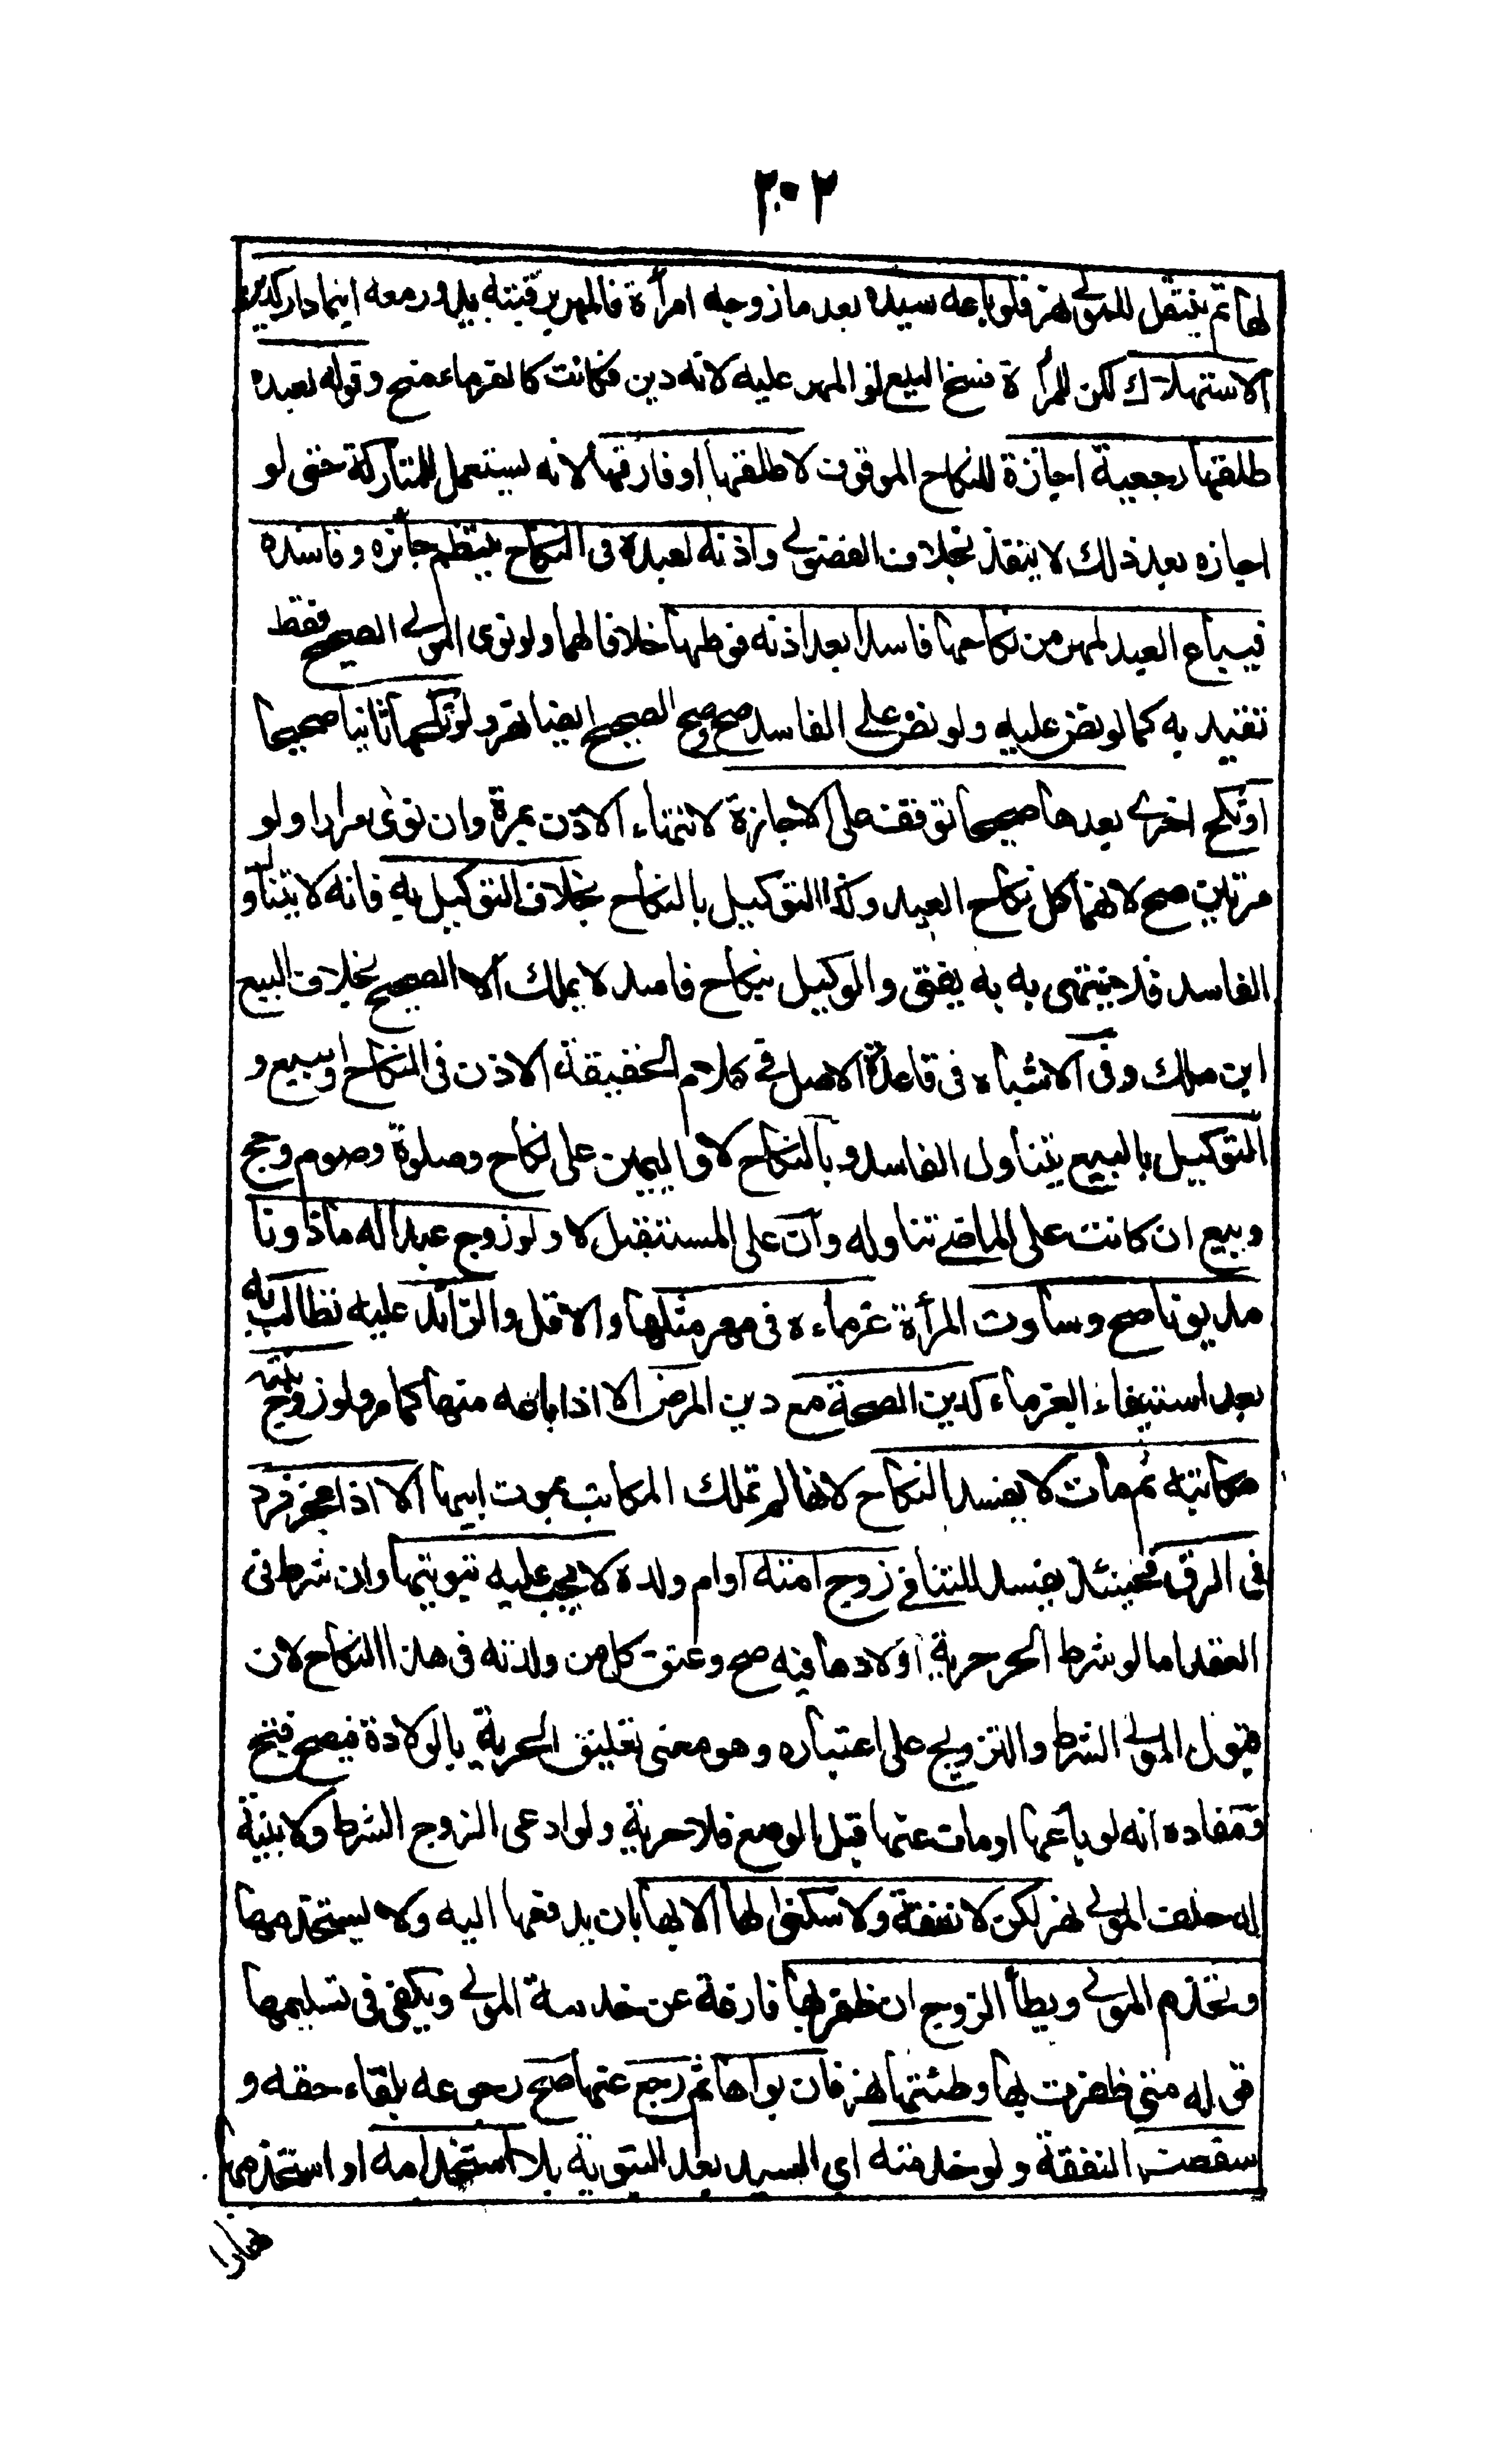 ٢٠٢
لها ثم ينتقل للمولى نهر فلو باعه سيده بعد ما زوجه امرأة فالمهر برقبته يدور معه اينما دار كدين
الاستهلاك لكن للمرأة فسخ البيع لو المهر عليه لانه دين فكانت كالغرماء منح وقوله لعبده
طلقها رجعية اجازة للنكاح الموقوف لا طلقها او فارقها لانه يستعمل للمتاركة حتى لو
اجازه بعد ذلك لا ينفذ بخلاف الفضولي واذنه لعبده فى النكاح ينتظم جائزه وفاسده
فيباع العبد لمهر من نكاحها فاسدا بعد اذنه فوطئها خلافا لهما ولو نوى المولى الصحيح فقط
تقيد به كما لو نص عليه ولو نص على الفاسد صح وصح الصحيح ايضا نهر ولو نكحها ثانيا صحيحا
او نكح اخرى بعدها صحيحا توقف على الاجازة لانتهاء الاذن بمرة وان نوى مرارا ولو
مرتين صح لانهما كل نكاح العبد وكذا التوكيل بالنكاح بخلاف التوكيل به فانه لا يتناول
الفاسد فلا ينتهى به به يفتى والوكيل بنكاح فاسد لا يملك الا الصحيح بخلاف البيع
ابن ملك وفى الاشباه فى قاعدة الاصل فى كلام الحقيقة الاذن فى النكاح او بيع و
التوكيل بالبيع يتناول الفاسد وبالنكاح لا واليمين على نكاح وصلوة وصوم وحج
وبيع ان كانت على الماضى تناوله وان على المستقبل لا ولو زوج عبدا له ماذونا
مديونا صح وساوت المرأة غرماءه فى مهر مثلها والاقل والزائد عليه تطالب به
بعد استيفاء الغرماء كدين الصحة مع دين المرض الا اذا باعه منها كما مر ولو زوج بنته
مكاتبه ثم مات لا يفسد النكاح لانها لم تملك المكاتب بموت ابيها الا اذا عجز فرد
فى الرق فحينئذ يفسد للتنافى زوج امته او ام ولده لا يجب عليه تبويتها وان شرط فى
العقد اما لو شرط الحر حرية اولادها فيه صح وعتق كل من ولدته فى هذا النكاح لان
قبول المولى الشرط والتزويج على اعتباره وهو معنى تعليق الحرية بالولادة فيصح فتح
ومفاده انه لو باعها او مات عنها قبل الوضع فلا حرية ولو ادعى الزوج الشرط ولا بينة
له حلف المولى نهر لكن لا نفقة ولا سكنى لها الا بها بان يدفعها اليه ولا يستخدمها
وتخدم المولى ويطأ الزوج ان ظفر بها فارغة عن خدمة المولى ويكفى فى تسليمها
قوله متى ظفرت بها وطئتها نهر فان بواها ثم رجع عنها صح رجوعه لبقاء حقه و
سقطت النفقة ولو خدمته اى السيد بعد التبوية بلا استخدامه او استخدمها